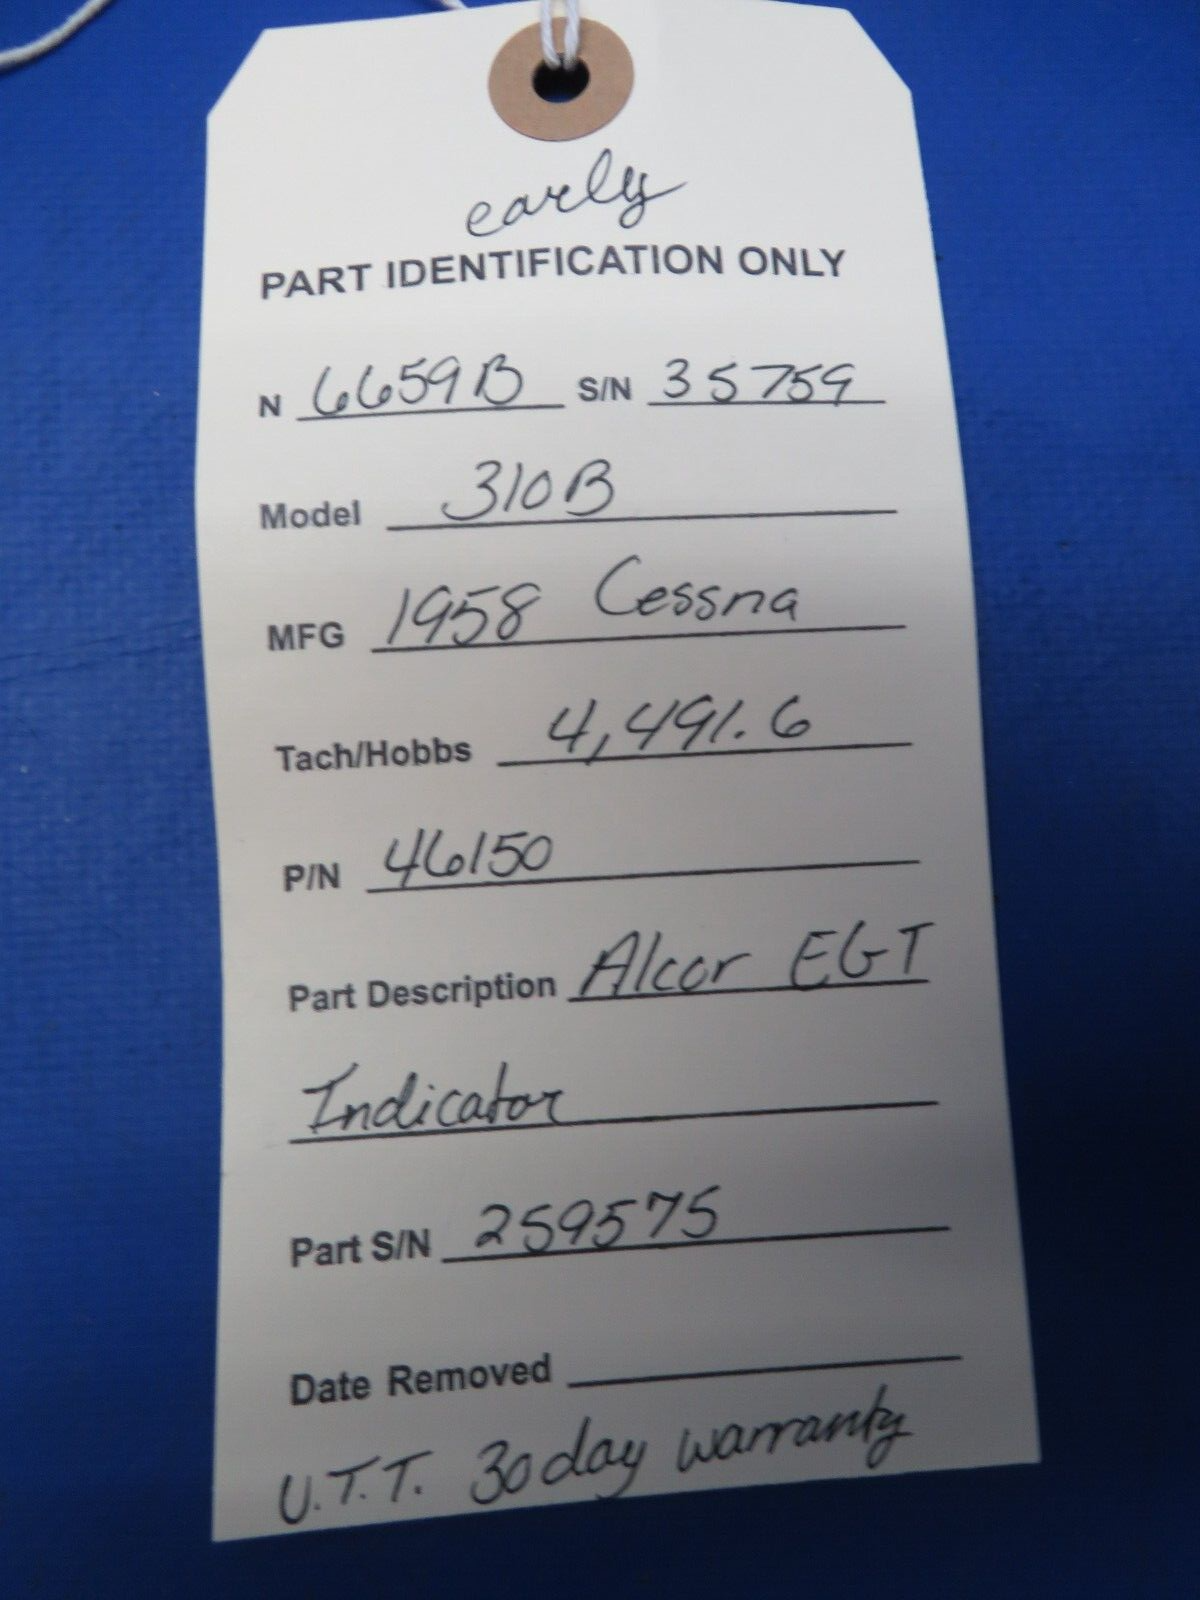 early
PART IDENTIFICATION ONLY
N 6659B S/N 35759
Model 310B
MFG 1958 Cessna
Tach/Hobbs 4,491.6
P/N 46150
Part Description Alcor EGT
Indicator
Part S/N 259575
Date Removed
U.T.T. 30 day warranty